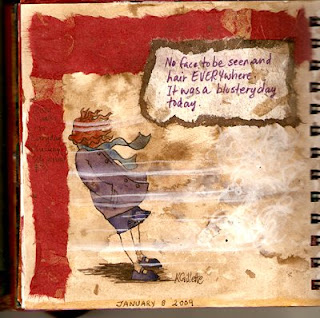 No face to be seen and
hair EVERYwhere.
It was a blustery day
today.
JANUARY 8 2009